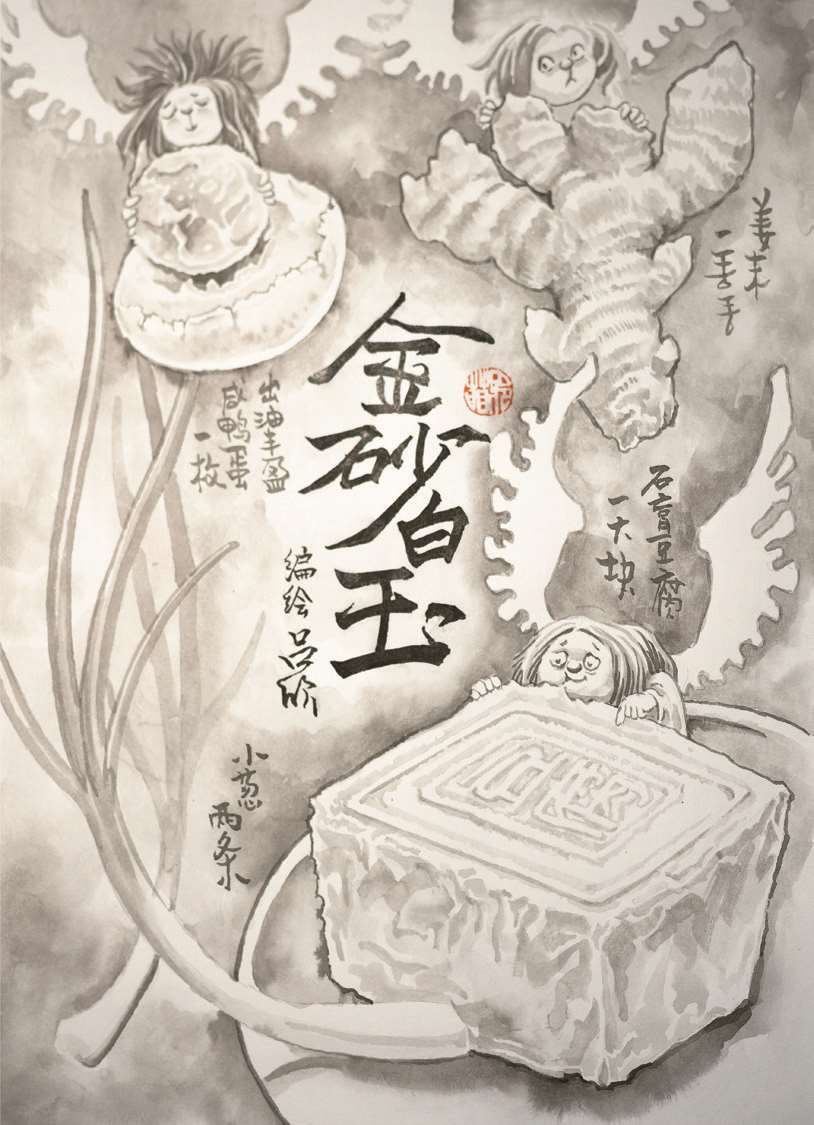 金砂白玉
编绘 吕欣
出油丰盈
咸鸭蛋
一枚
姜末
一芽子
石膏豆腐
一大块
小葱
两条